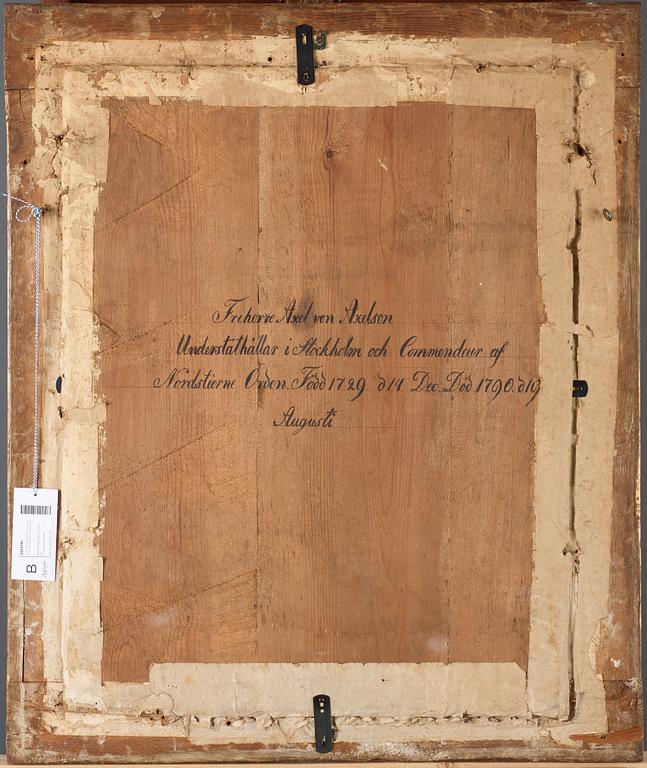 Friherre Axel von Axelson
Understathållar i Stockholm och Commendeur af
Nordstierne Orden. Född 1729 d 14 Dec. Död 1790. d 19
Augusti
B